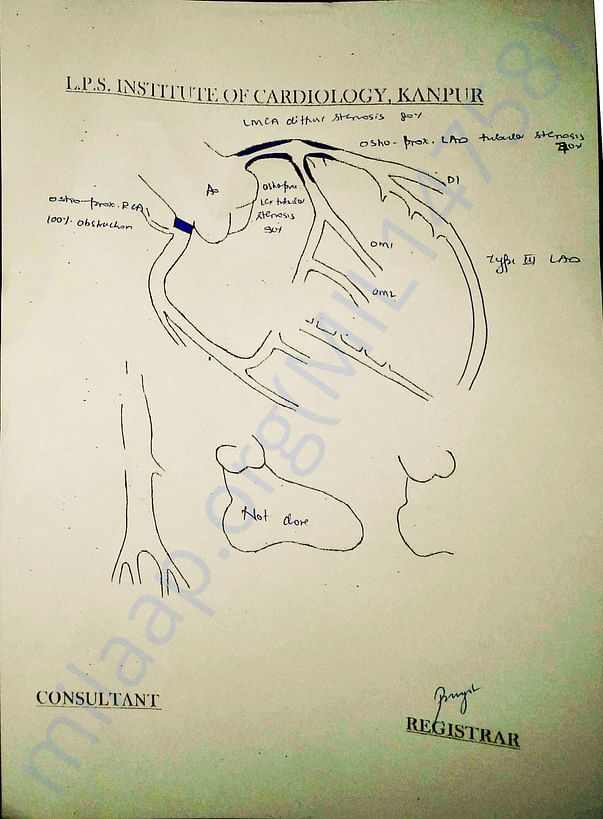 L.P.S. INSTITUTE OF CARDIOLOGY, KANPUR
LMCA diffuse stenosis 90%
osteo-prox. LAD tubular stenosis
90%
D1
Ao
osteo-prox. RCA
100% obstruction
osteo-prox
LCx tubular
stenosis
90%
OM1
OM2
Type III LAD
Not done
CONSULTANT
REGISTRAR
milaap.org(MIL14758)